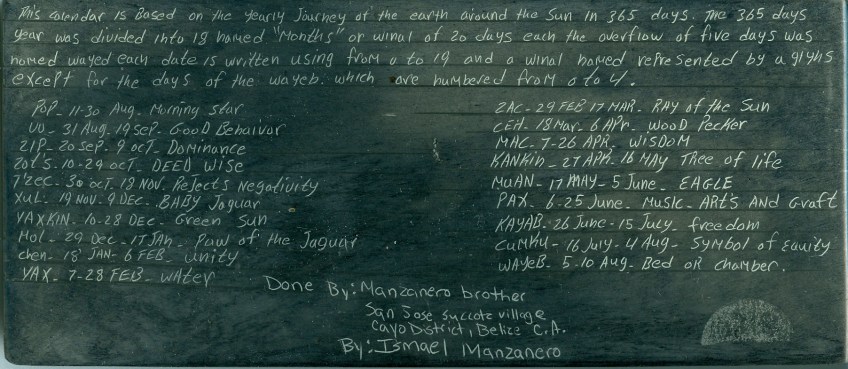 This calendar is Based on the yearly Journey of the earth around the Sun in 365 days. The 365 days
year was divided into 18 named "Months" or winal of 20 days each the overflow of five days was
named wayed each date is written using from 0 to 19 and a winal named represented by a glyhs
except for the days of the wayeb. which are numbered from 0 to 4.
POP - 11-30 Aug. Morning star
UO - 31 Aug. 19 Sep. Good Behaivor
ZIP - 20 Sep. 9 oct. Dominance
Zot'S. 10-29 oct. DEED wise
T'zec. 30 oct. 18 Nov. Rejects Negativity
XuL. 19 Nov. 9 Dec. BABY Jaguar
YAXKIN. 10-28 Dec - Green Sun
Mol - 29 Dec - 17 Jan - Paw of the Jaguar
chen - 18 JAN - 6 FEB - unity
YAX - 7-28 FEB - water
ZAC - 29 FEB 17 MAR. RAY of the Sun
CEH. 18 Mar. 6 APr. wood Pecker
MAC. 7-26 APR. WISDOM
KANKin - 27 APR. 16 MAy Thee of life
MuAN - 17 MAY - 5 June - EAGLE
PAX - 6-25 June. Music - ARTS And Graft
KAYAB. 26 June - 15 July. freedom
CuMHu - 16 July - 4 Aug - Symbol of Equity
WAYeB. 5-10 Aug - Bed or chamber.
Done By: Manzanero brother
San Jose Succotz village
Cayo District, Belize C.A.
By: Ismael Manzanero